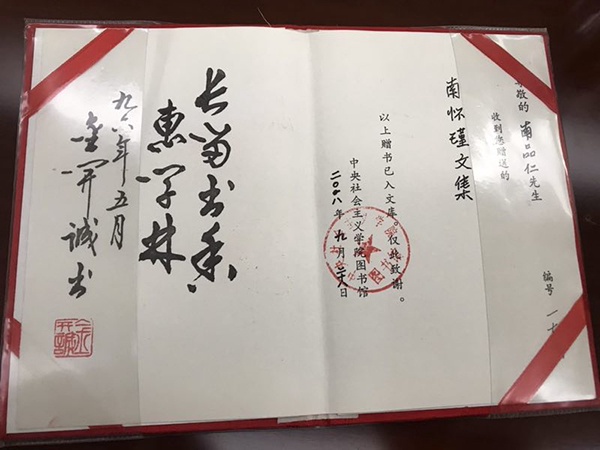 编号 一七
敬的 南品仁先生
收到您赠送的
南怀瑾文集
以上赠书已入文库。仅此致谢。
中央社会主义学院图书馆
二〇一八年九月二十八日
长留书香
惠学林
九六年五月
金开诚书
金开诚